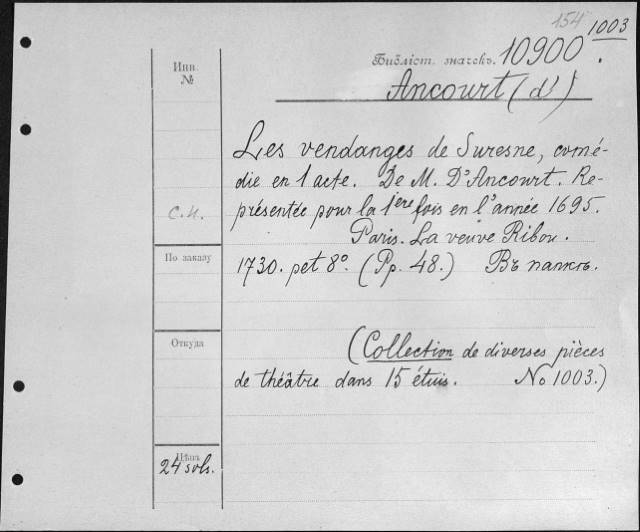 154 1003
Библіот. значекъ. 10900.
Ancourt (d')
Инв.
№
Les vendanges de Suresne, comé-
die en 1 acte. De M. D'Ancourt. Re-
présentée pour la 1ère fois en l'année 1695.
Paris. La veuve Ribou.
1730. pet 8º. (Pp. 48.) Въ папкѣ.
С.Ч.
По заказу
Откуда
(Collection de diverses pièces
de théâtre dans 15 étuis. No 1003.)
Цѣна
24 sols.